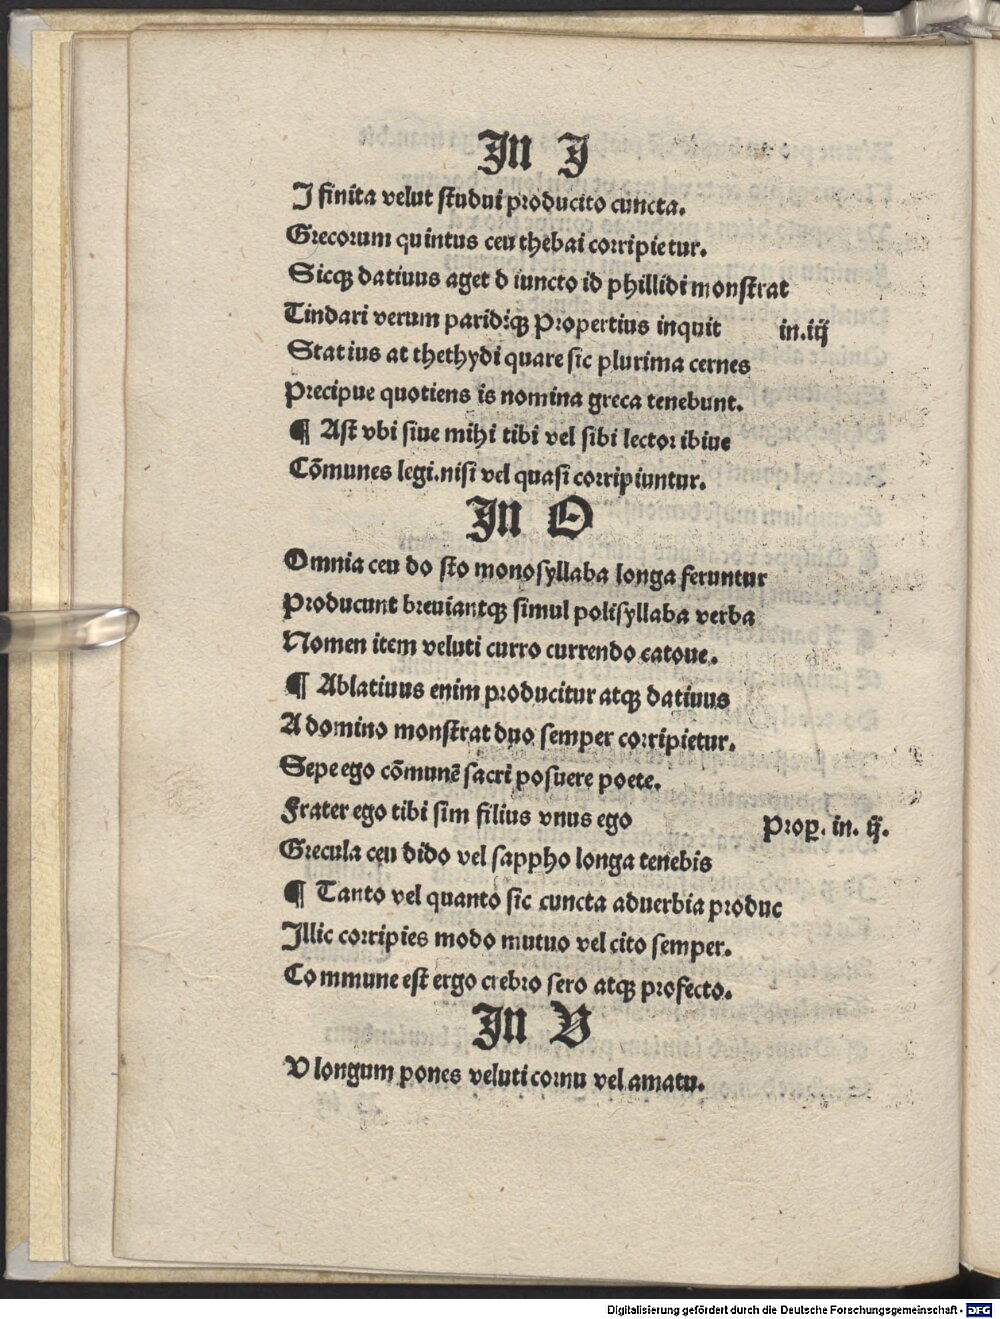 In I
I finita velut ſtudui producito cuncta.
Grecorum quintus ceu thebai corripietur.
Sicqꝫ datiuus aget d iuncto id phillidi monſtrat
Tindari verum paridiqꝫ Propertius inquit in.iij
Statius at thethydi quare ſic plurima cernes
Precipue quotiens is nomina greca tenebunt.
¶ Aſt vbi ſiue mihi tibi vel ſibi lector ibiue
Cōmunes legi.niſi vel quaſi corripiuntur.
In O
Omnia ceu do ſto monoſyllaba longa feruntur
Producunt breuiantqꝫ ſimul poliſyllaba verba
Nomen item veluti curro currendo catoue.
¶ Ablatiuus enim producitur atqꝫ datiuus
A domino monſtrat duo ſemper corripietur.
Sepe ego cōmunē ſacri poſuere poete.
Frater ego tibi ſim filius vnus ego Prop̲. in. ij.
Grecula ceu dido vel ſappho longa tenebis
¶ Tanto vel quanto ſic cuncta aduerbia produc
Illic corripies modo mutuo vel cito ſemper.
Commune eſt ergo crebro ſero atqꝫ profecto.
In V
V longum pones veluti cornu vel amatu.
Digitalisierung gefördert durch die Deutsche Forschungsgemeinschaft - DFG